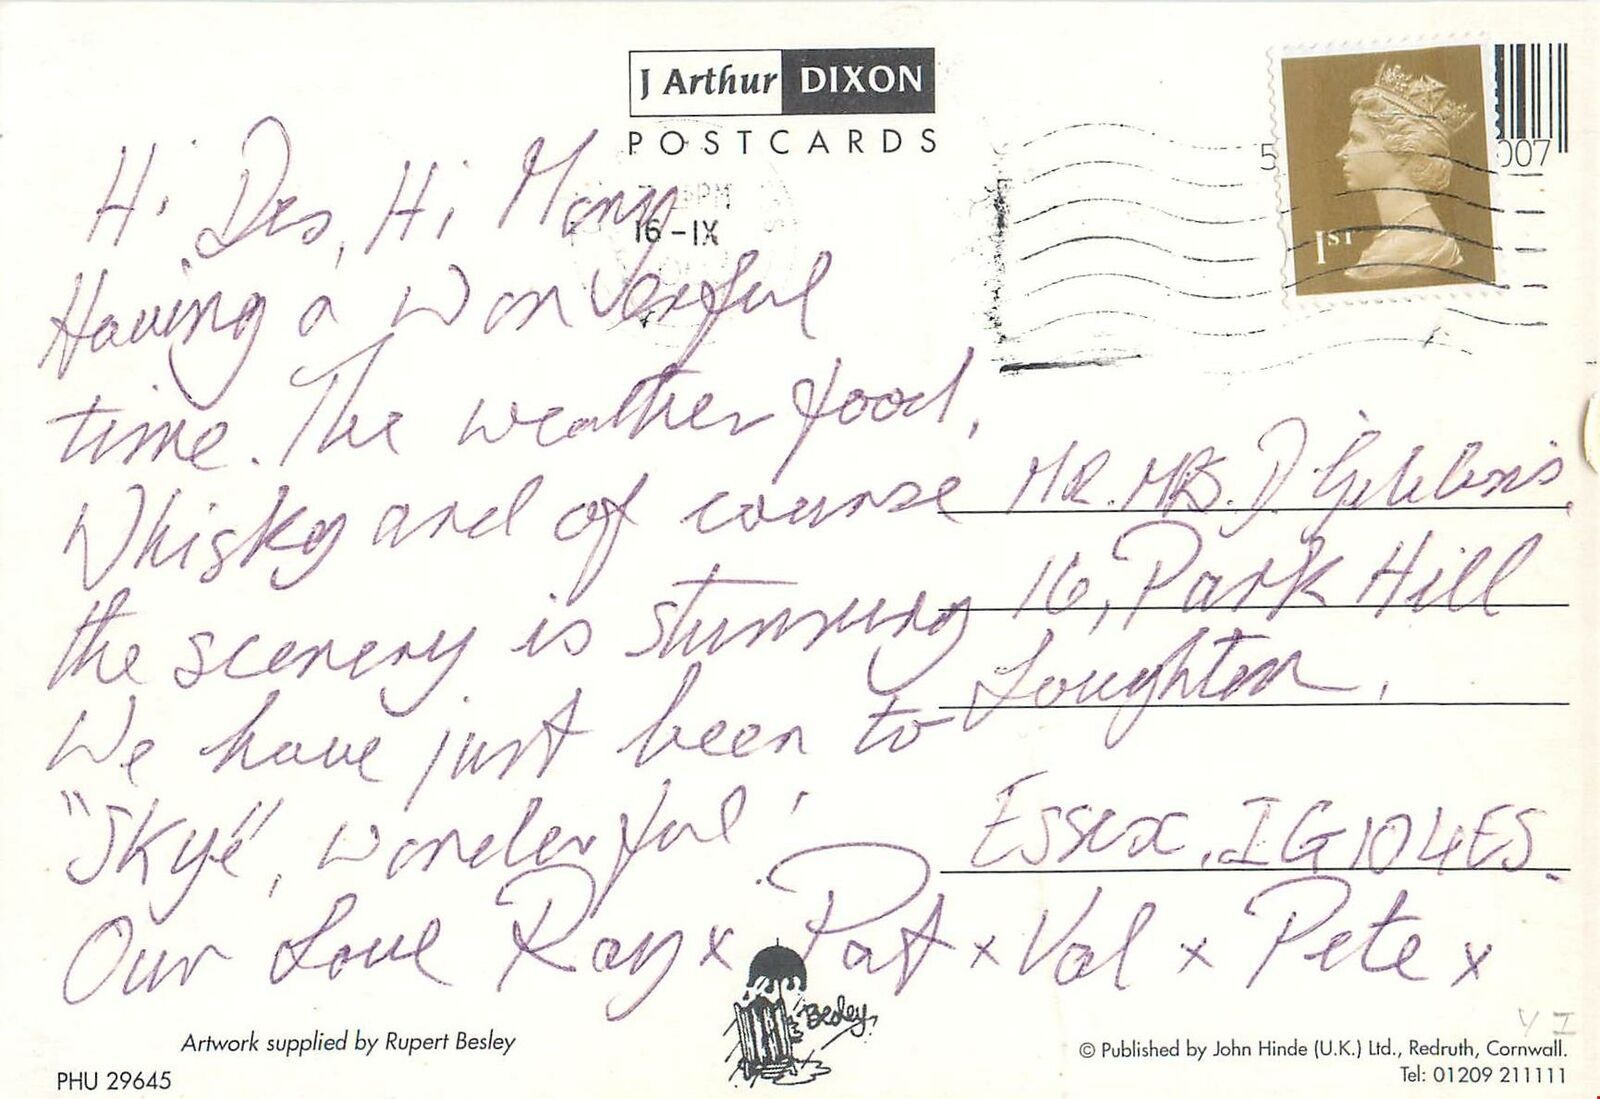 J Arthur DIXON
POSTCARDS
16-IX
1ST
5
007
Hi Des, Hi Mary
Having a wonderful
time. The weather food,
Whisky and of course
the scenery is stunning
We have just been to
"Skye", wonderful!
Our Love Ray x Pat x Val x Pete x
MR. MRS. D Gibbons.
16, Park Hill
Loughton,
ESSEX. IG10 4ES.
Besley.
Artwork supplied by Rupert Besley
PHU 29645
© Published by John Hinde (U.K.) Ltd., Redruth, Cornwall.
Tel: 01209 211111